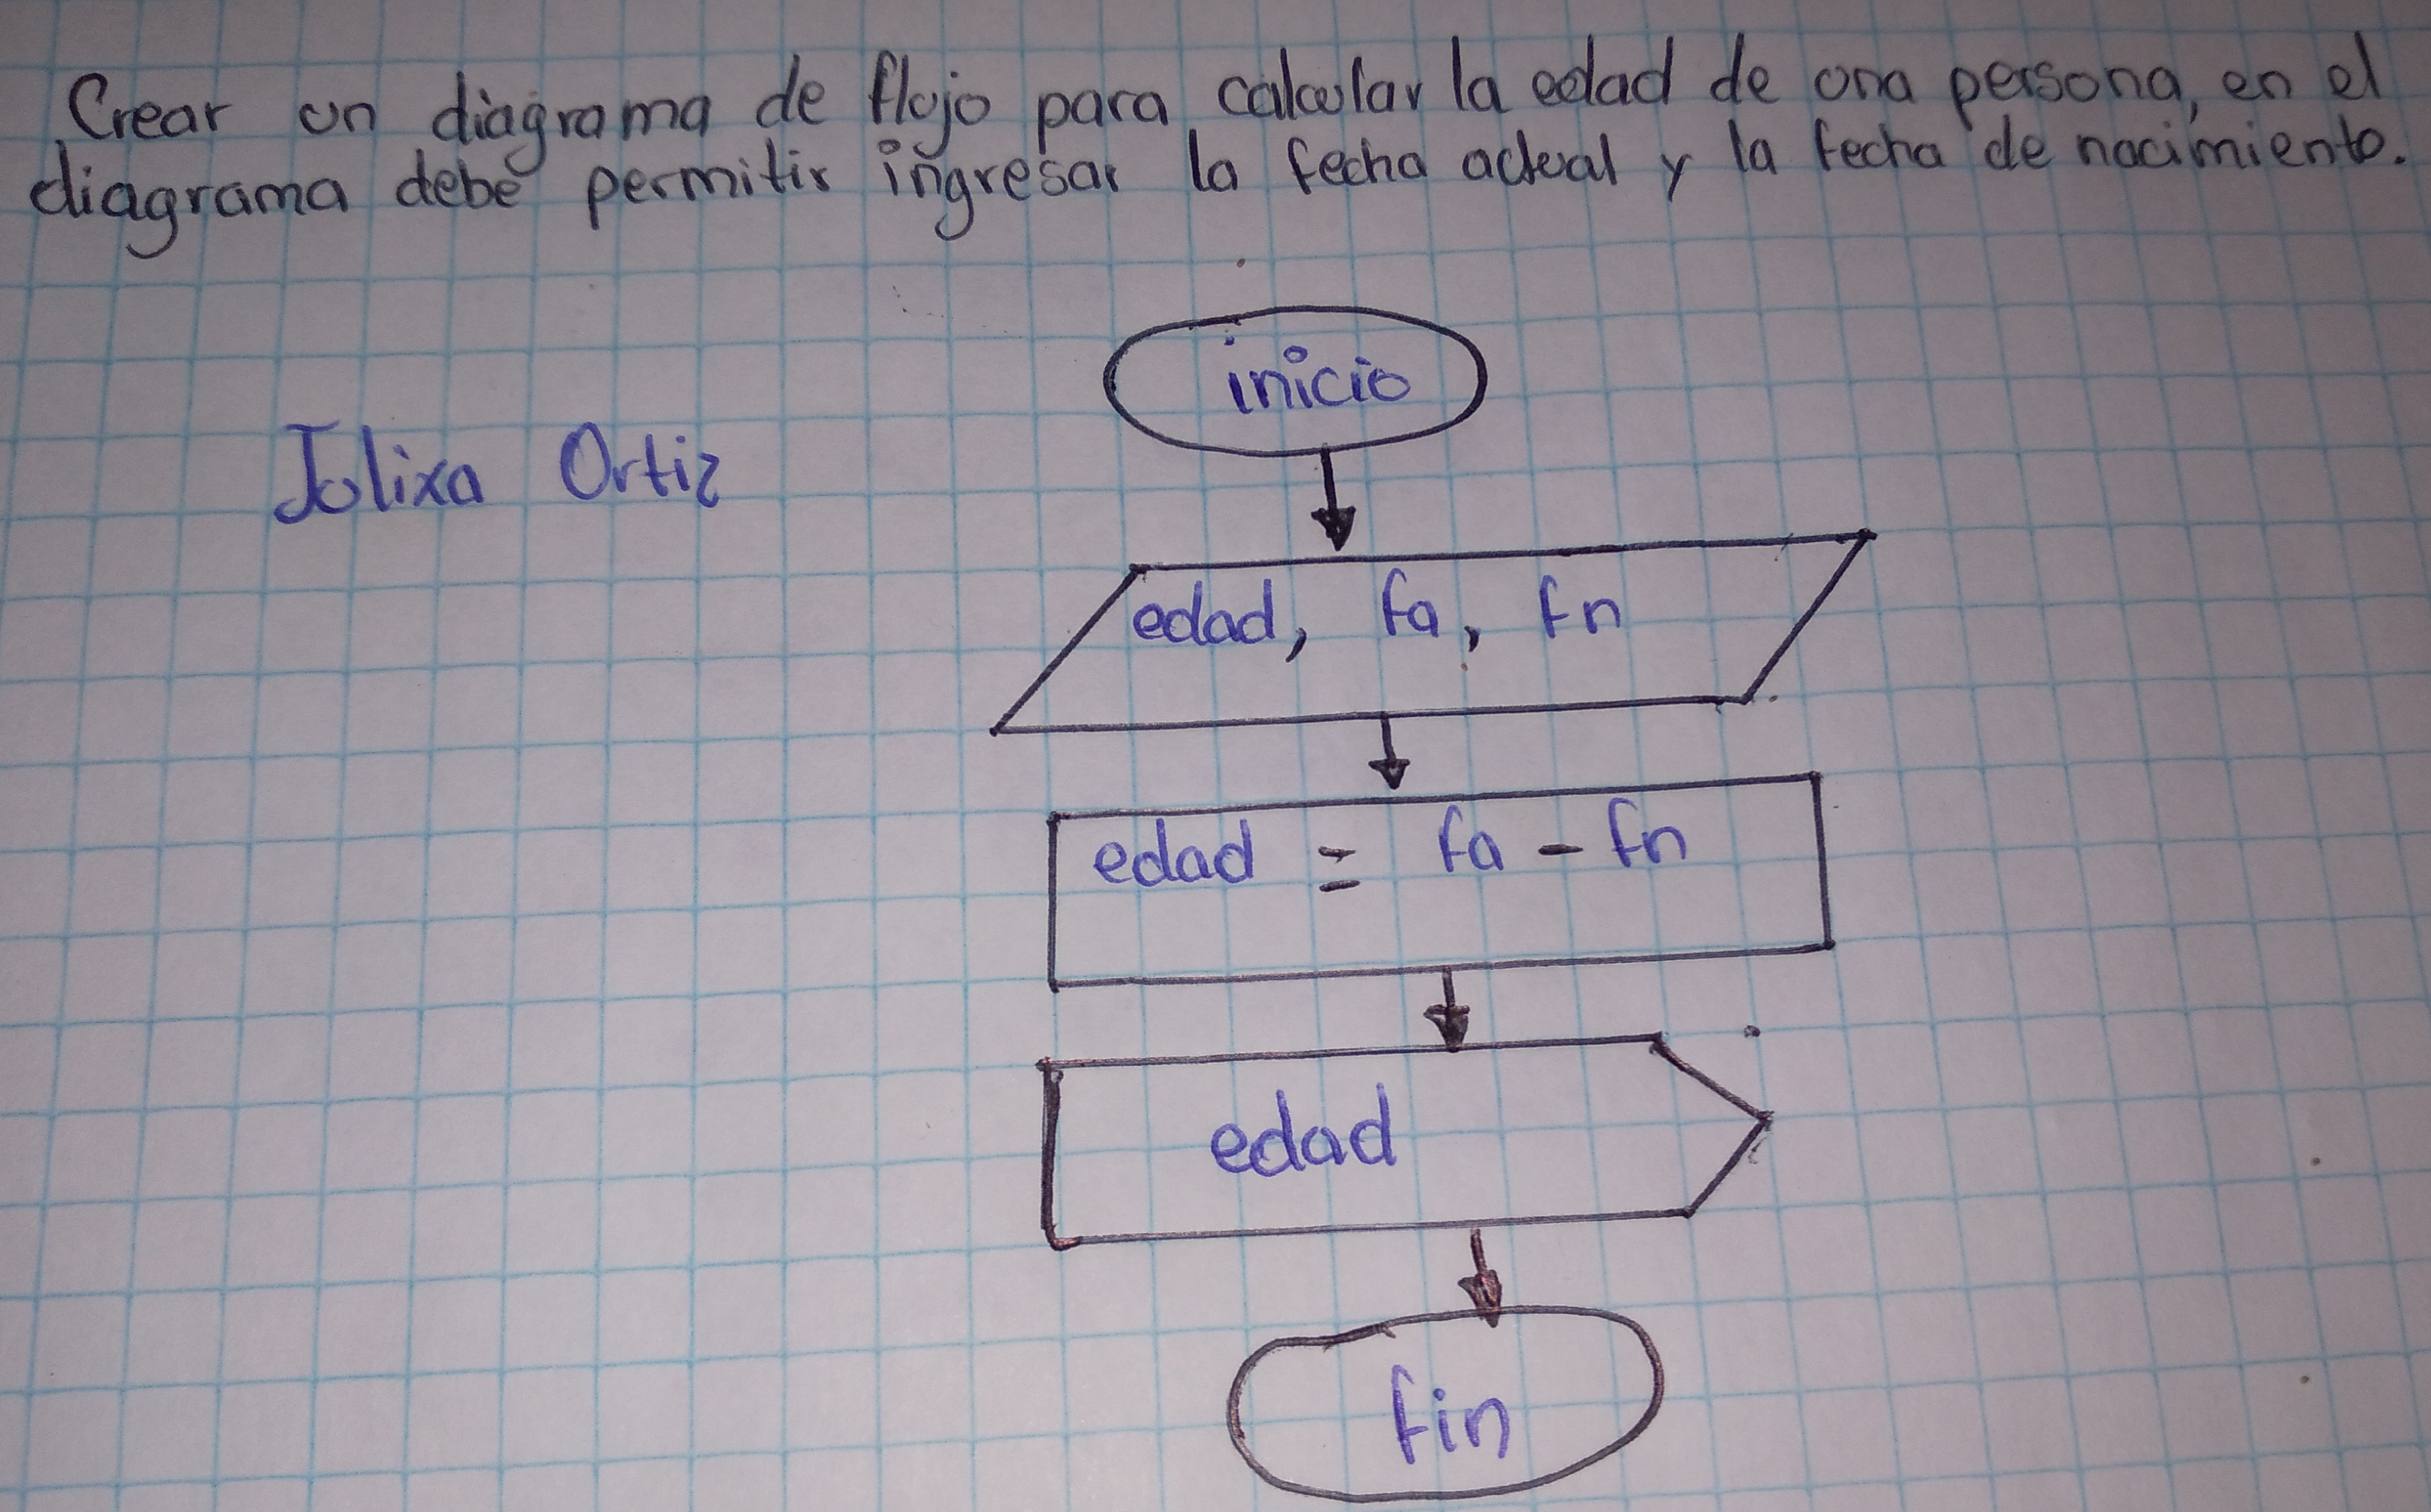 Crear un diagrama de flujo para calcular la edad de una persona, en el
diagrama debe permitir ingresar la fecha actual y la fecha de nacimiento.
inicio
Julixa Ortiz
edad, fa, fn
edad = fa - fn
edad
fin